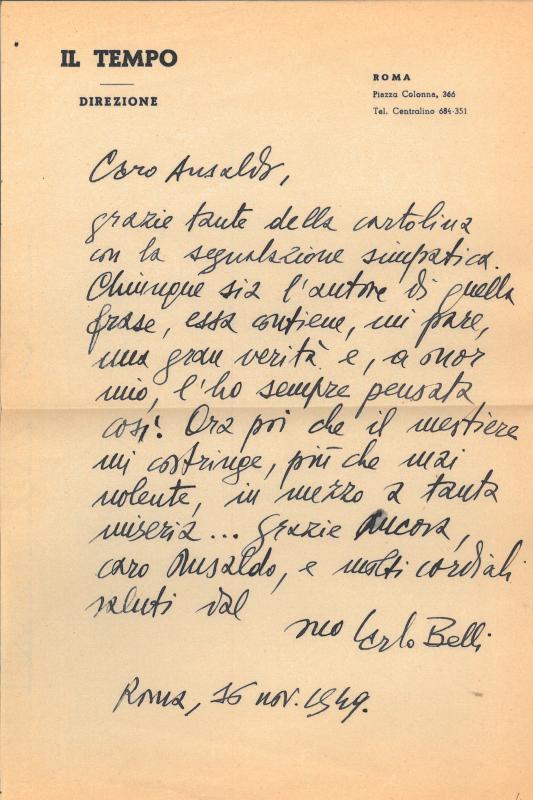 IL TEMPO
DIREZIONE
ROMA
Piazza Colonna, 366
Tel. Centralino 684-351
Caro Ansaldo,
grazie tante della cartolina
con la segnalazione simpatica.
Chiunque sia l'autore di quella
frase, essa contiene, mi pare,
una gran verità e, a onor
mio, l'ho sempre pensata
così! Ora poi che il mestiere
mi costringe, più che mai
nolente, in mezzo a tanta
miseria... grazie ancora,
caro Ansaldo, e molti cordiali
saluti dal
suo Carlo Belli
Roma, 16 nov. 1949.